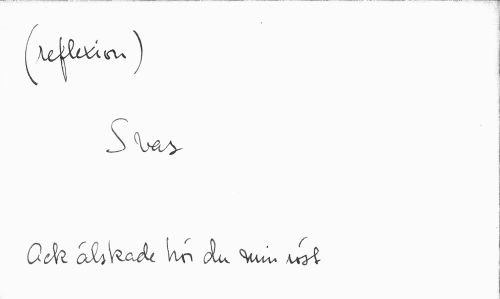 (reflexion)
Svas
Ack älskade hör du min röst